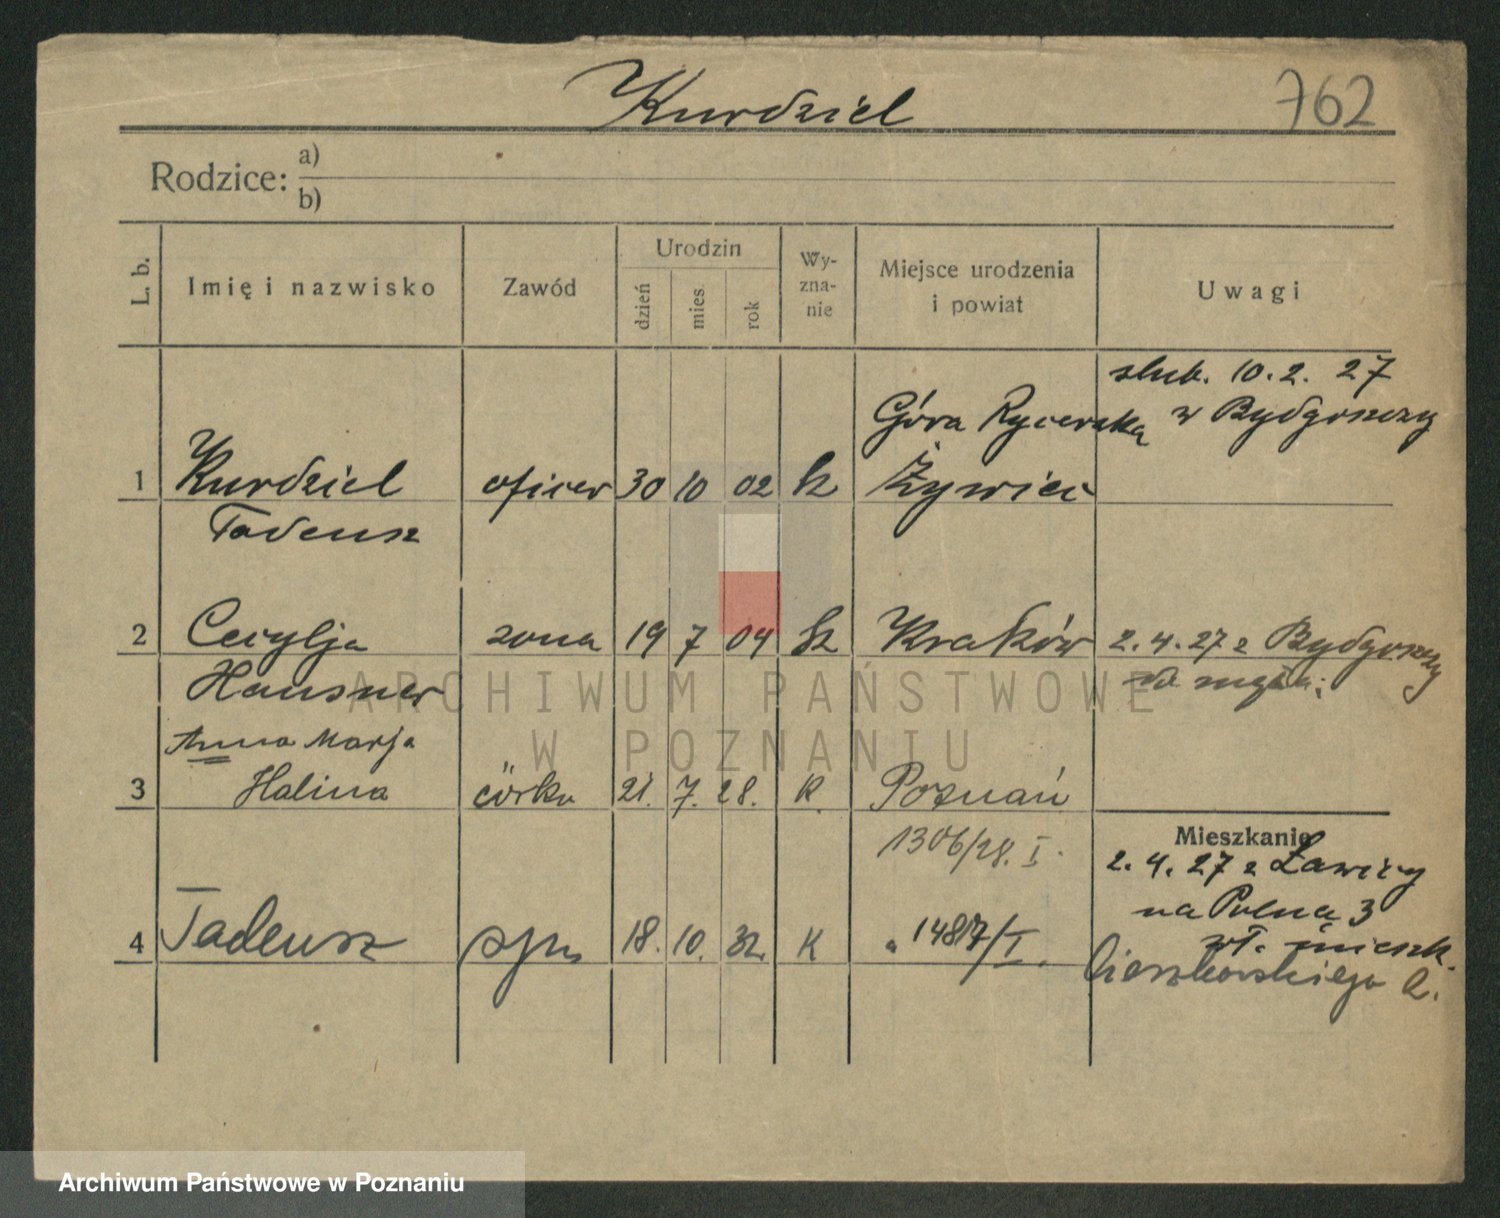 Kurdziel
762
Rodzice:
a)
b)
L. b.
Imię i nazwisko
Zawód
Urodzin
dzień
mies.
rok
Wy-
zna-
nie
Miejsce urodzenia
i powiat
Uwagi
ślub. 10. 2. 27
w Bydgoszczy
Góra Rycerska
1 Kurdziel oficer 30 10 02 Żywiec
Tadeusz
2 Cecylja żona 19 7 04 Kraków 2. 4. 27 z Bydgoszczy
Hausner do męża;
Anna Marja
3 Halina córka 21. 7. 28. K. Poznań
1306/28. I.
Mieszkanie
2. 4. 27 z Ławicy
na Polną 3
4 Tadeusz syn 18. 10. 32. K " 1487/I. wł. mieszk.
Cieszkowskiego 2.
ARCHIWUM PAŃSTWOWE
W POZNANIU
Archiwum Państwowe w Poznaniu